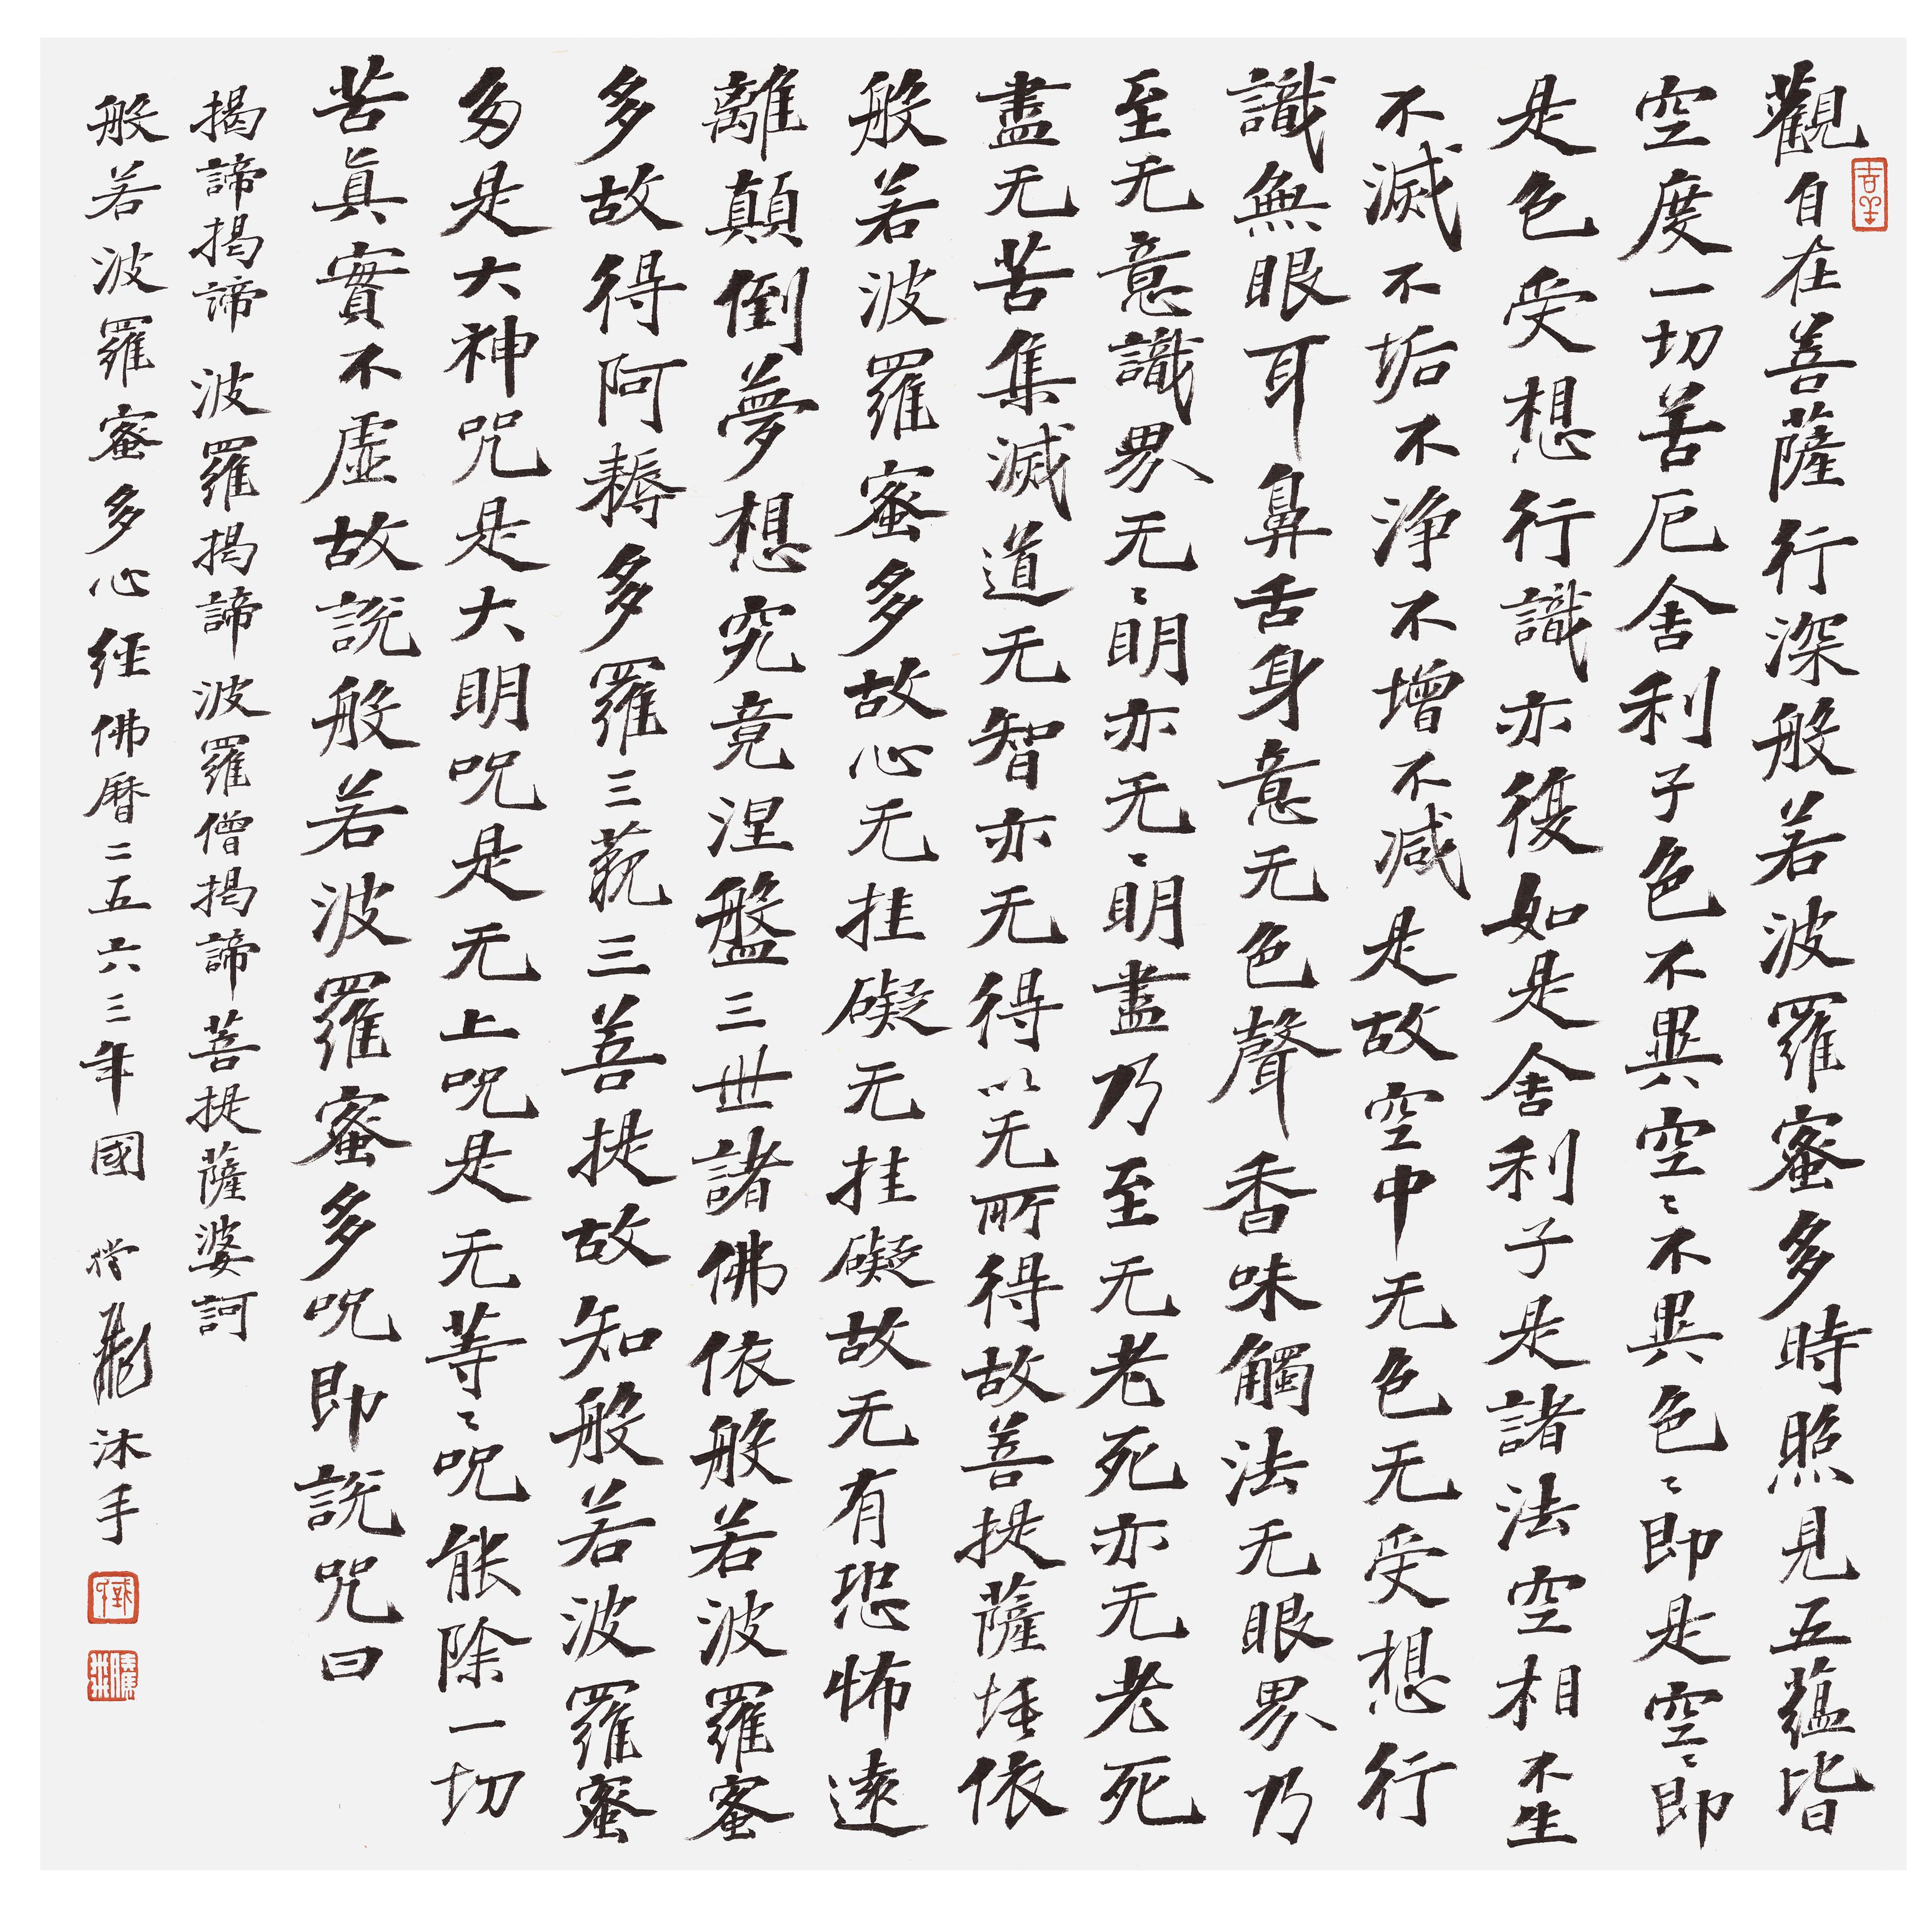 觀自在菩薩行深般若波羅蜜多時照見五蘊皆
空度一切苦厄舍利子色不異空〻不異色〻即是空〻即
是色受想行識亦復如是舍利子是諸法空相不生
不滅不垢不淨不增不減是故空中无色无受想行
識無眼耳鼻舌身意无色聲香味觸法无眼界乃
至无意識界无〻明亦无〻明盡乃至无老死亦无老死
盡无苦集滅道无智亦无得以无所得故菩提薩埵依
般若波羅蜜多故心无挂礙无挂礙故无有恐怖遠
離顛倒夢想究竟涅盤三世諸佛依般若波羅蜜
多故得阿耨多羅三藐三菩提故知般若波羅蜜
多是大神咒是大明咒是无上咒是无等〻咒能除一切
苦真實不虛故說般若波羅蜜多咒即說咒曰
揭諦揭諦波羅揭諦波羅僧揭諦菩提薩婆訶
般若波羅蜜多心經佛曆二五六三年國沐手